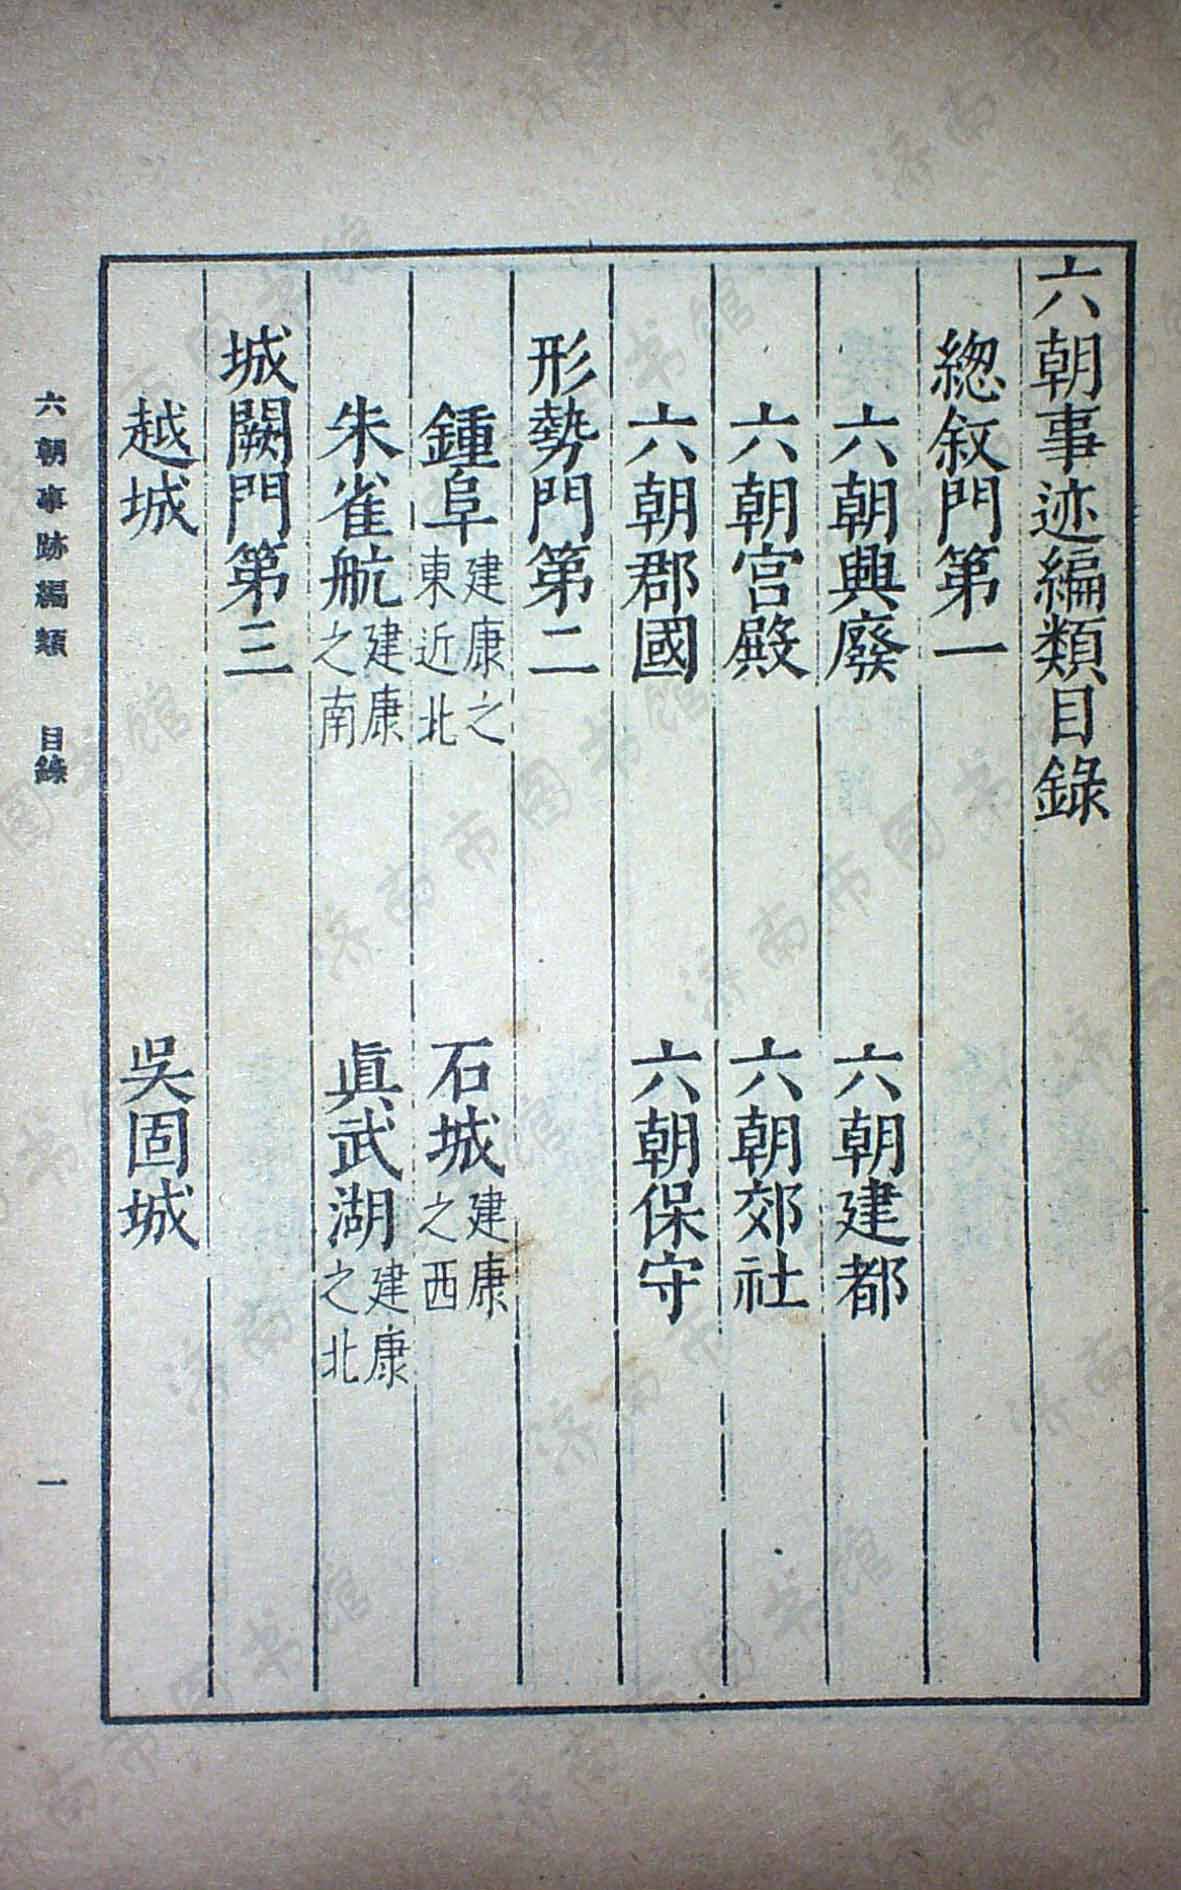 六朝事迹編類目錄
緫叙門第一
六朝興廢　六朝建都
六朝宫殿　六朝郊社
六朝郡國　六朝保守
形勢門第二
鍾阜建康之東近北　石城建康之西
朱雀航建康之南　眞武湖建康之北
城闕門第三
越城　吳固城
六朝事跡編類　目錄　一
济南市图书馆